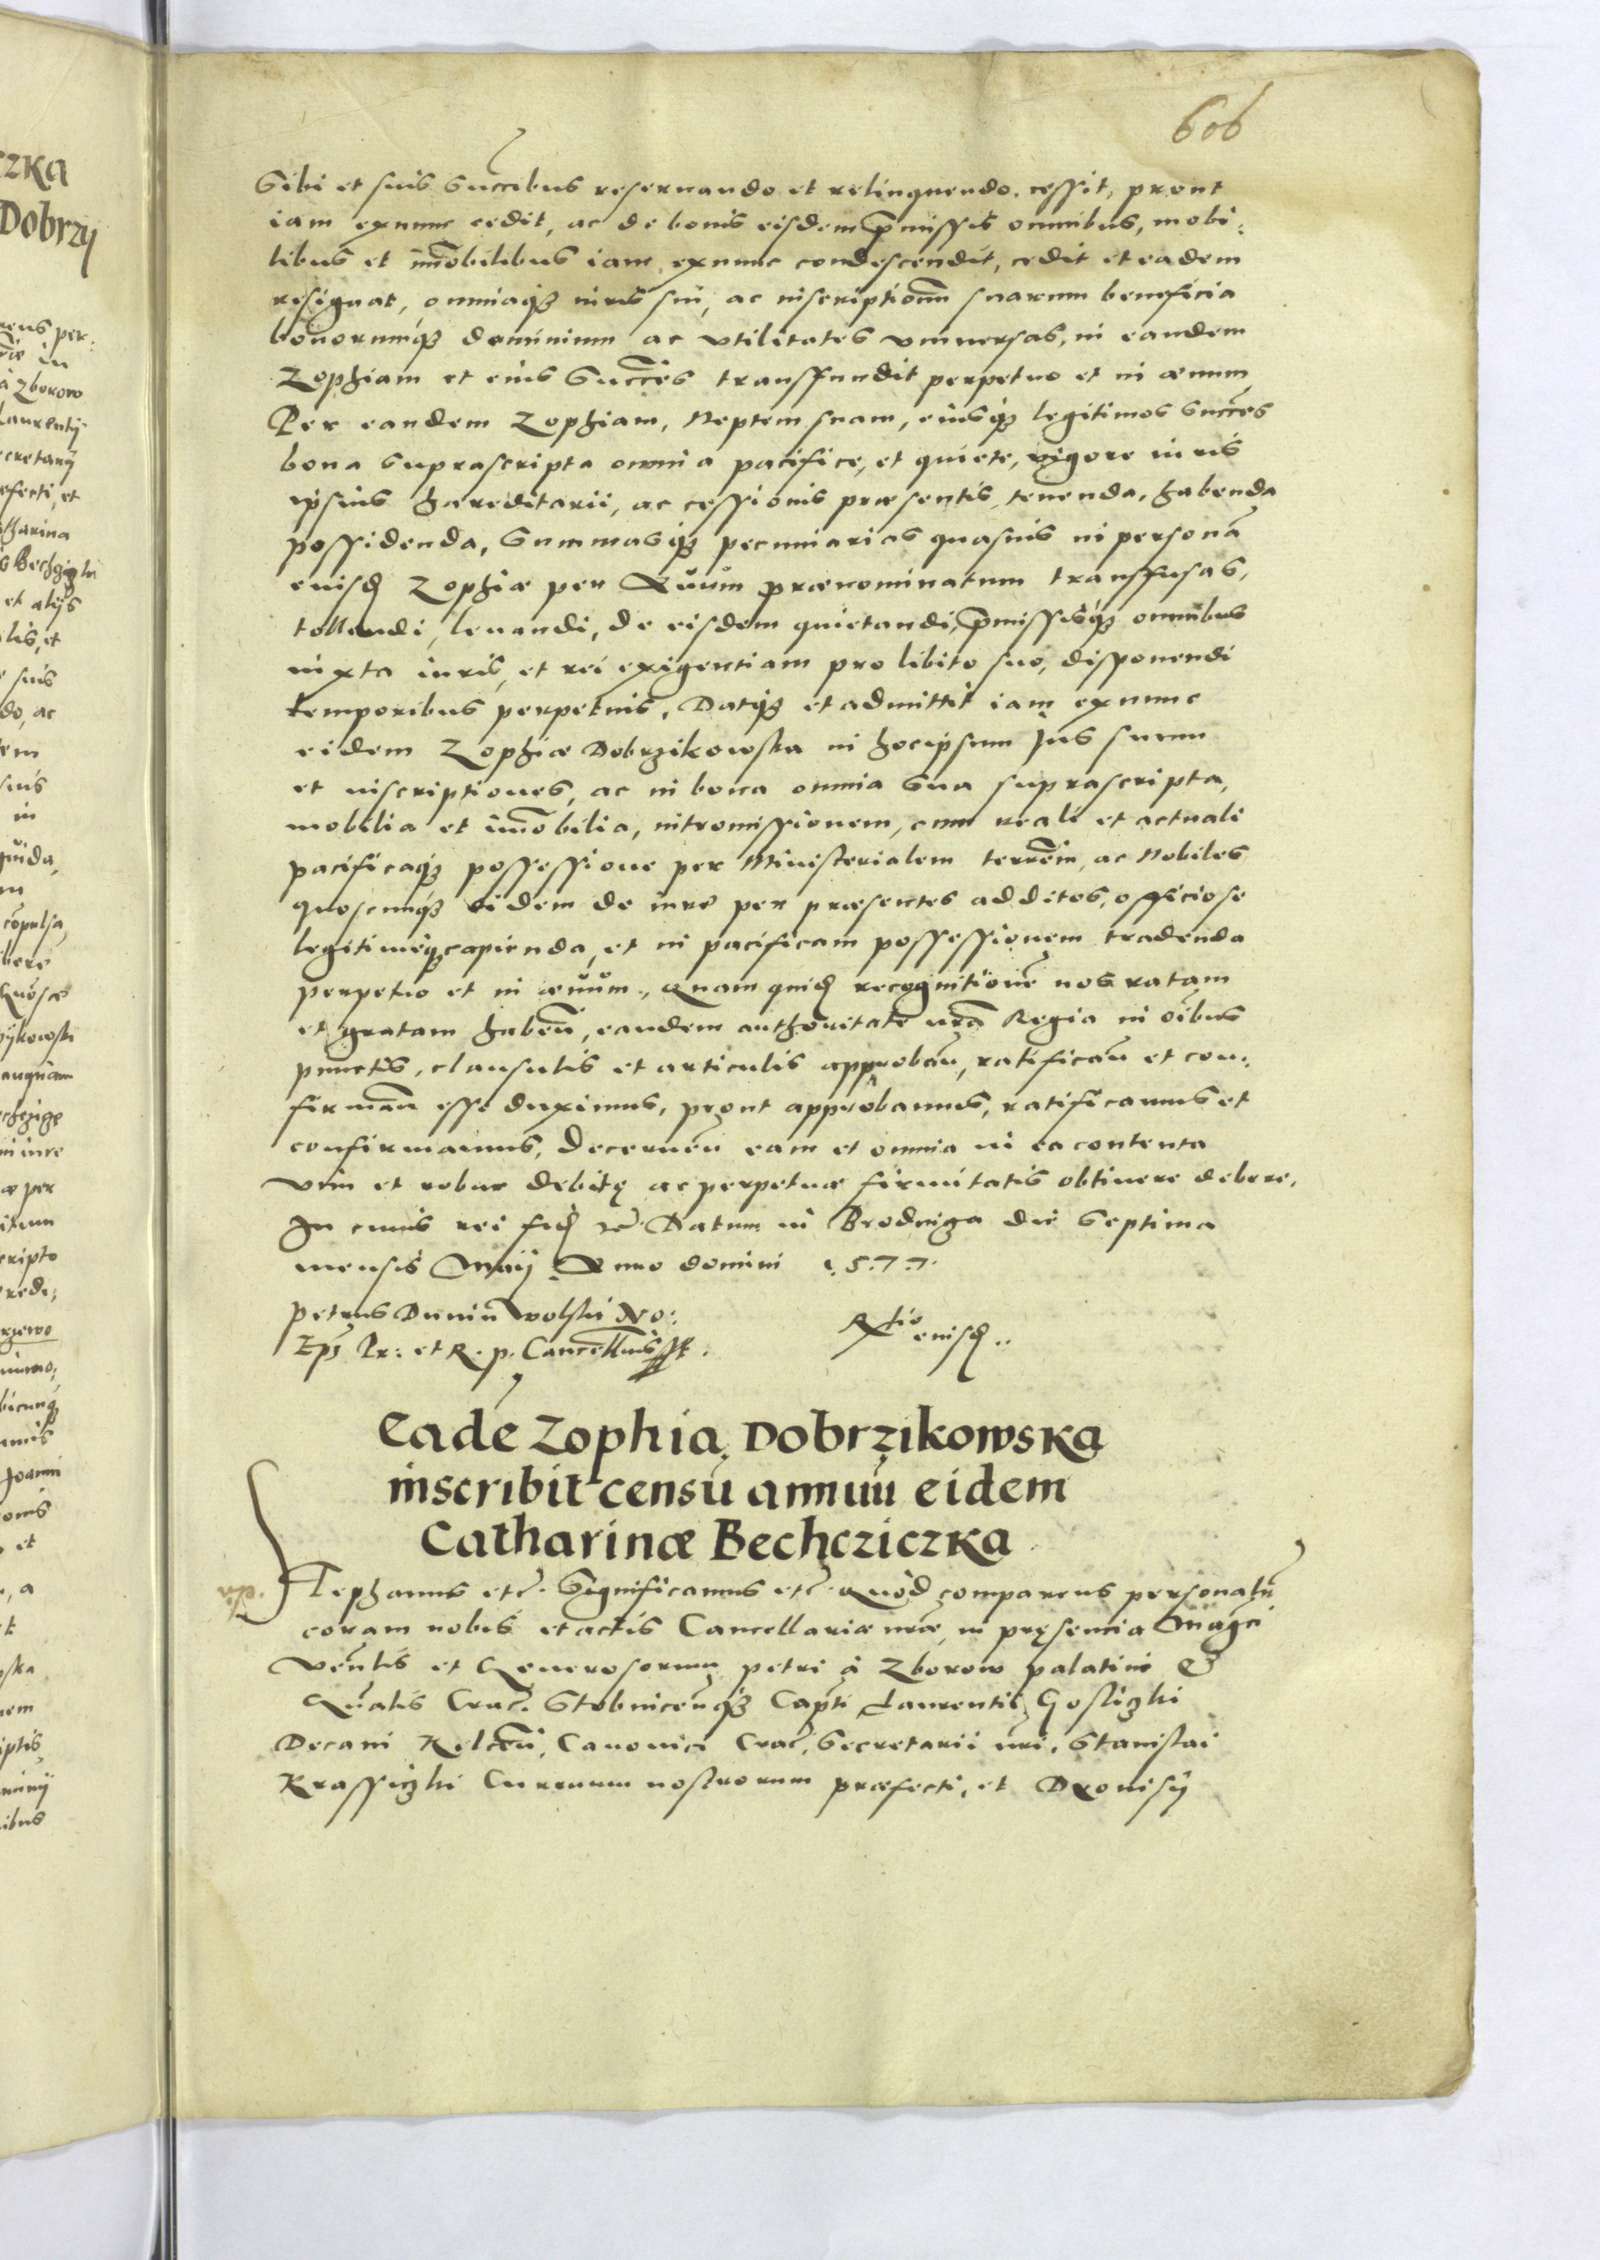 606
Sibi et suis Succibus reseruando et relinquendo. cessit, prout
iam exnunc cedit, ac de bonis eisdem pmissis omnibus, mobi:
libus et imobilibus iam exnunc condescendit, cedit et eadem
resignat, omniaq iuris sui, ac inscriptionum suarum beneficia
bonorumq dominium ac vtilitates vniuersas, in eandem
Zophiam et eius Succes transfundit perpetuo et in æuum
Per eandem Zophiam, Neptem suam, eiusq legitimos Succes
bona suprascripta omnia pacifice, et quiete, vigore iuris
ipsius hæreditarii, ac cessionis præsentis, tenenda, habenda
possidenda, Summasq pecuniarias quasuis in personã
eiusd Zophiæ per prænominatum transfusas,
tollendi, leuandi, de eisdem quietandi, pmissisq omnibus
iuxta iuris, et rei exigentiam pro libito suo, disponendi
temporibus perpetuis, Datq et admittit iam exnunc
eidem Zophiæ Dobrzikowska in hocipsum Jus suum
et inscriptiones, ac in bona omnia Sua suprascripta,
mobilia et imobilia, intromissionem, cum reali et actuali
pacificaq possessione per Ministerialem terrem, ac Nobiles
quoscunq eidem de iure per præsentes additos, officiose
legitimeq capienda, et in pacificam possessionem tradenda
perpetuo et in æuum. Quam quid recognitionẽ nos ratam
et gratam haben, eandem authoritate nrã Regia in oibus
punctis, clausulis et articulis approban, ratifican et con:
firman esse duximus, prout approbamus, ratificamus et
confirmamus, Decernen eam et omnia in ea contenta
vim et robur debitę ac perpetuæ firmitatis obtinere debere.
In cuius rei fid Datum in Brodniga die Septima
mensis Maij Anno domini 1577
Petrus Dunin Wolski No:
Eps Pr: et R. p. Cancellrius sst.
Rtio eiusd
Eadẽ Zophia Dobrzikowska
inscribit censũ annuũ eidem
Catharinæ Bechcziczka
Stephanus etc. Significamus etc. Quòd comparens personalr
coram nobis et actis Cancellariæ nræ, in pręsencia Magci
Venlis et Generosorum Petri à Zborow palatini &
Gnalis Crac. Stobnicenq Capti Laurentij Goslizki
Decani Kelcen, Canonici Crac, Secretarii nri, Stanislai
Krassizki Curruum nostrorum præfecti, et Dionisij